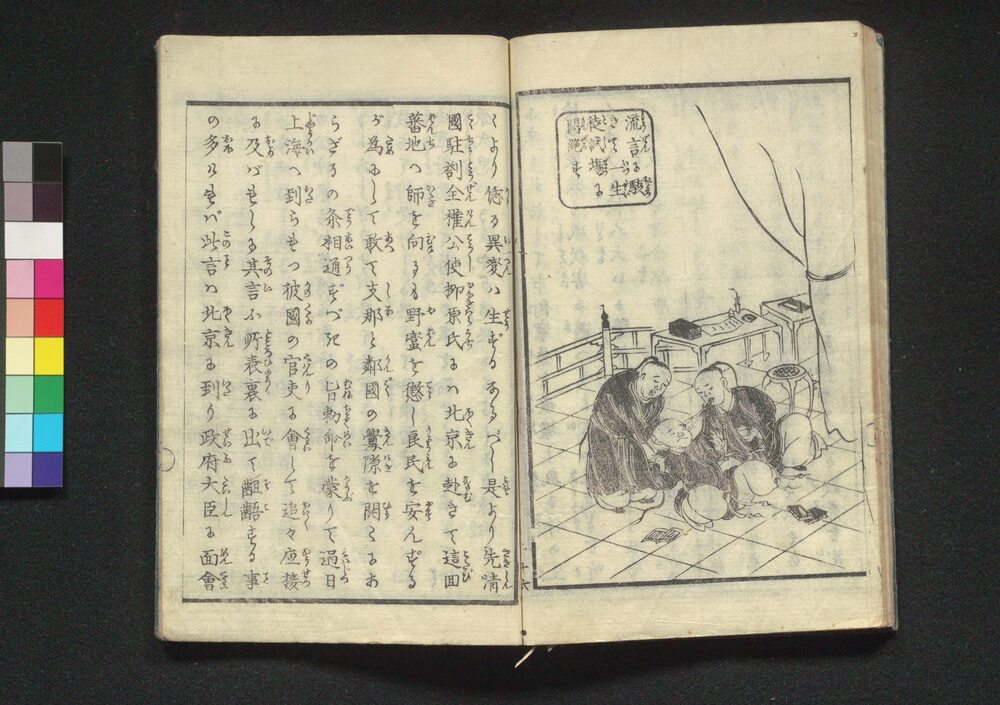 流言に駭
きて一生
徒試場に
悶絶す
くより係る異変ハ生ずるなるべし是より先清
國駐剳全権公使柳原氏にハ北京に赴きて這回
蕃地へ師を向るも野蛮を懲し良民を安んずる
が為にして敢て支那と鄰國の釁隙を開くにあ
らざるの条相通ずべきの旨勅命を蒙りて過日
上海へ到られつ彼國の官吏に會して追々應接
に及バれしも其言ふ所表裏に出て齟齬する事
の多かれバ此言ハ北京に到り政府大臣に面會